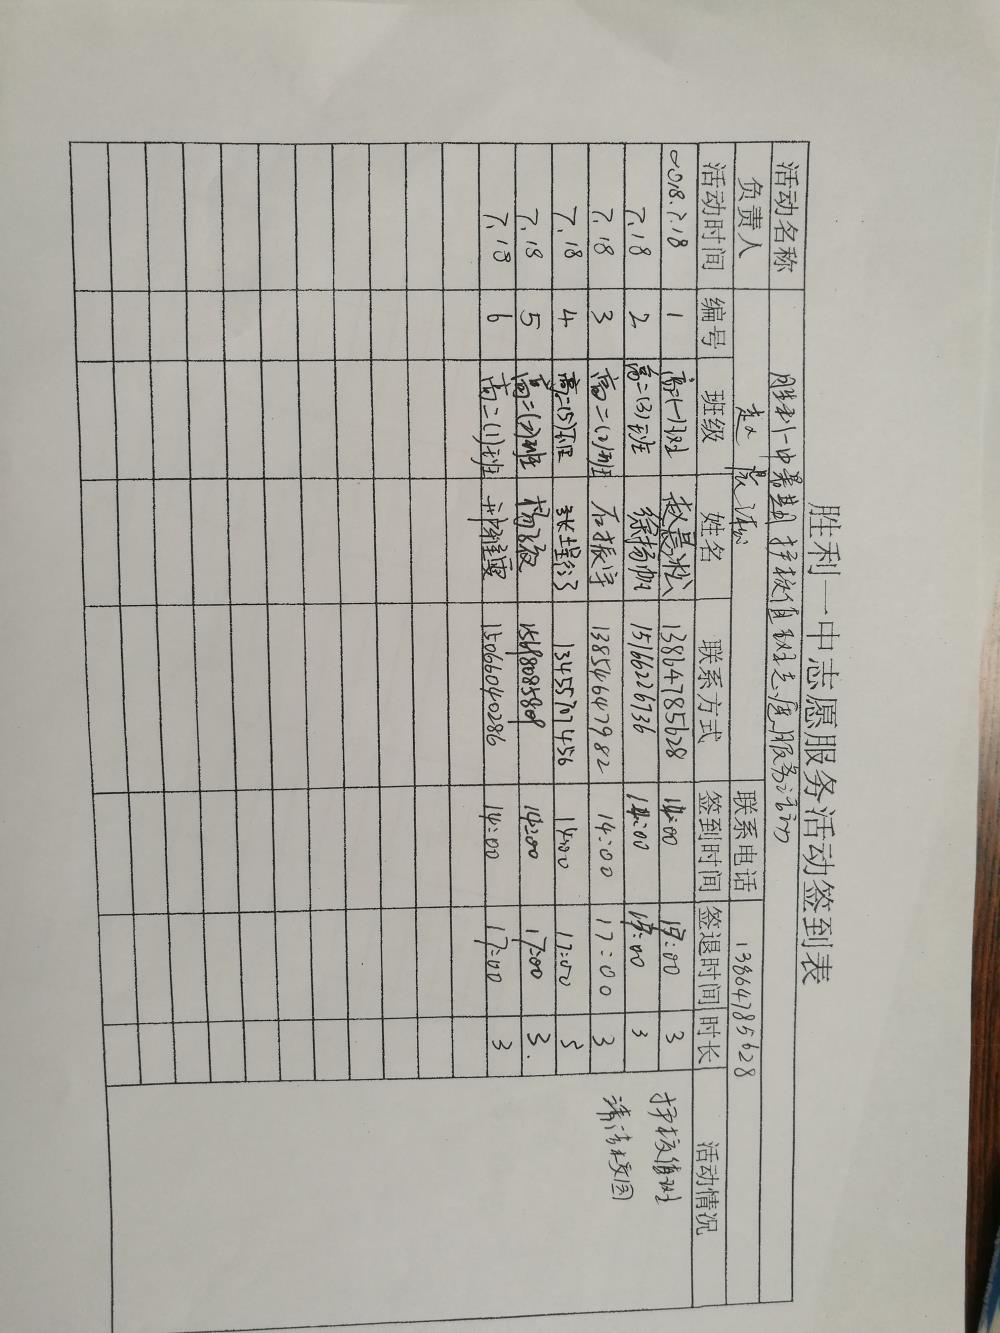 胜利一中志愿服务活动签到表
活动名称 胜利一中暑期护校值班志愿服务活动
负责人 赵晨淞 联系电话 13864785628
活动时间 编号 班级 姓名 联系方式 签到时间 签退时间 时长 活动情况
2018.7.18 1 高二(一)班 赵晨淞 13864785628 14:00 17:00 3 护校值班
7.18 2 高二(3)班 徐扬帆 15166226736 14:00 17:00 3
7.18 3 高二(2)班 石振宇 13854647982 14:00 17:00 3 清洁校园
7.18 4 高二(5)班 13455707456 14:00 17:00 3
7.18 5 高二(2)班 15698085809 14:00 17:00 3.
7.18 6 高二(1)班 15066040286 14:00 17:00 3